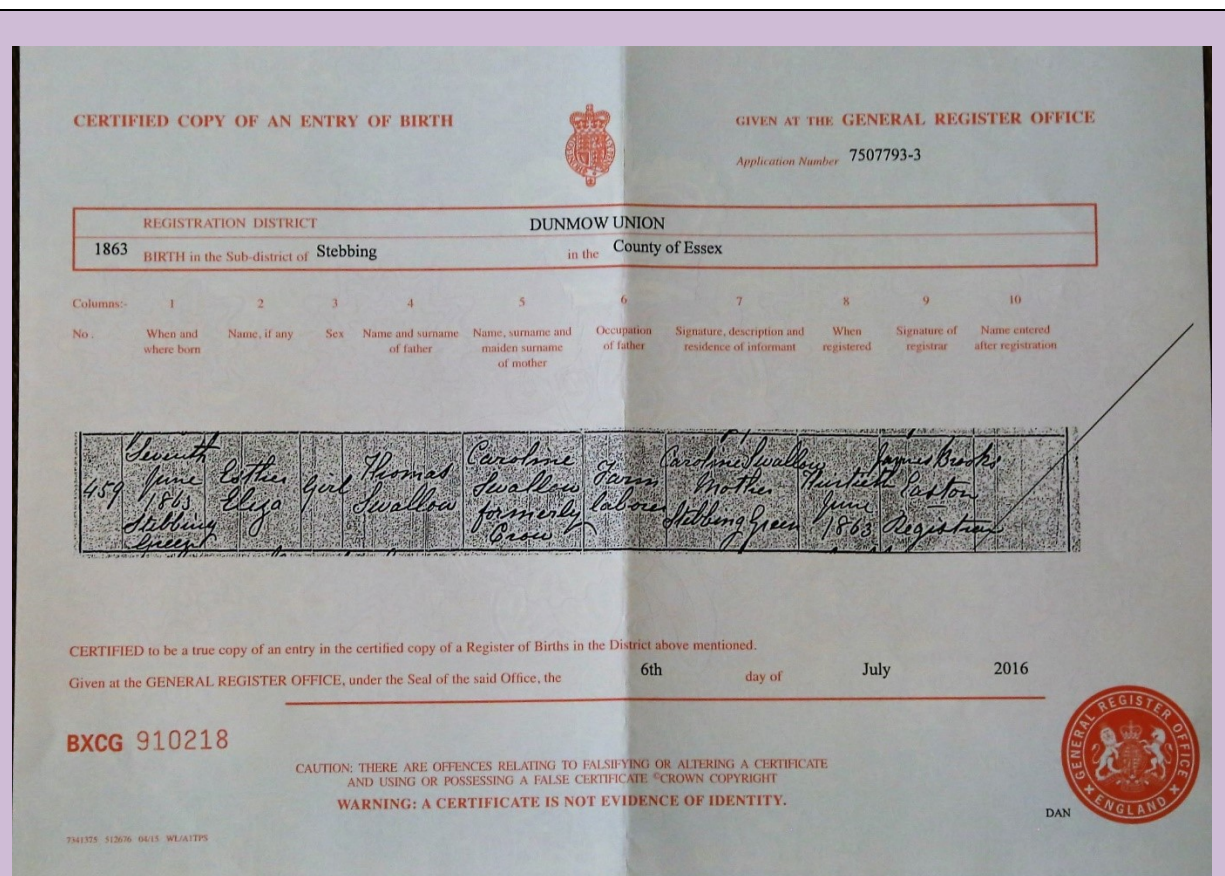 CERTIFIED COPY OF AN ENTRY OF BIRTH
GIVEN AT THE GENERAL REGISTER OFFICE
Application Number 7507793-3
REGISTRATION DISTRICT DUNMOW UNION
1863 BIRTH in the Sub-district of Stebbing in the County of Essex
Columns:- 1 2 3 4 5 6 7 8 9 10
No. When and where born Name, if any Sex Name and surname of father Name, surname and maiden surname of mother Occupation of father Signature, description and residence of informant When registered Signature of registrar Name entered after registration
459
Seventh
June
1863
Stebbing
Green
Esther
Eliza
Girl
Thomas
Swallow
Caroline
Swallow
formerly
Crow
Farm
laborer
Caroline Swallow
Mother
Stebbing Green
June
1863
Brooks
Easton
Registrar
CERTIFIED to be a true copy of an entry in the certified copy of a Register of Births in the District above mentioned.
Given at the GENERAL REGISTER OFFICE, under the Seal of the said Office, the 6th day of July 2016
BXCG 910218
CAUTION: THERE ARE OFFENCES RELATING TO FALSIFYING OR ALTERING A CERTIFICATE
AND USING OR POSSESSING A FALSE CERTIFICATE ©CROWN COPYRIGHT
WARNING: A CERTIFICATE IS NOT EVIDENCE OF IDENTITY.
GENERAL REGISTER OFFICE
ENGLAND
DAN
7341375 512676 04/15